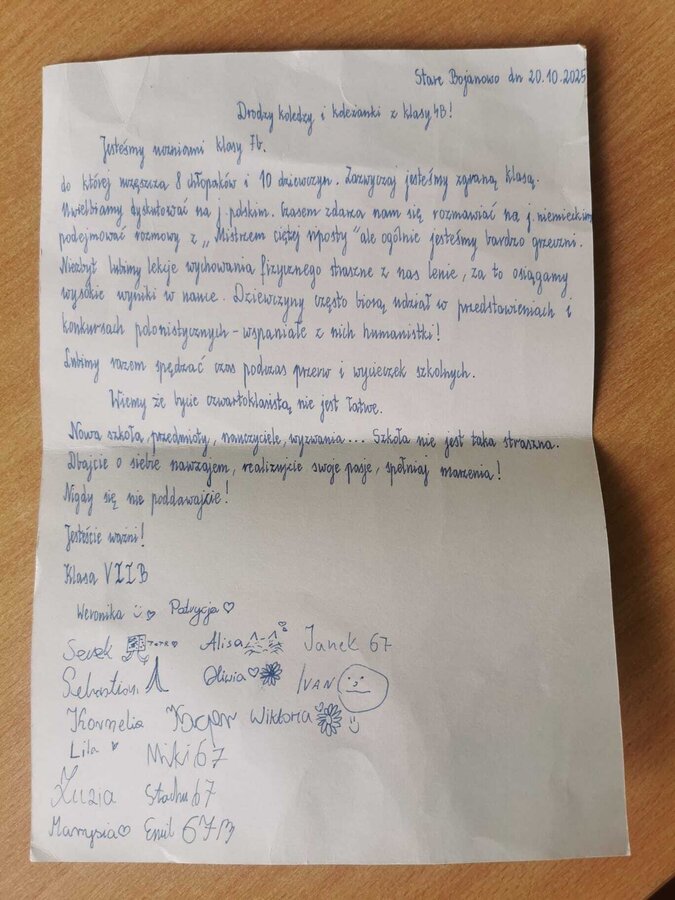 Stare Bojanowo dn 20.10.2025
Drodzy koledzy i koleżanki z klasy 4B!
Jesteśmy uczniami klasy 7b.
do której uczęszcza 8 chłopaków i 10 dziewczyn. Zazwyczaj jesteśmy zgraną klasą.
Uwielbiamy dyskutować na j. polskim. Czasem zdarza nam się rozmawiać na j. niemieckim
podejmować rozmowy z „Mistrzem ciętej riposty" ale ogólnie jesteśmy bardzo grzeczni.
Niezbyt lubimy lekcje wychowania fizycznego straszne z nas lenie, za to osiągamy
wysokie wyniki w nauce. Dziewczyny często biorą udział w przedstawieniach i
konkursach polonistycznych - wspaniałe z nich humanistki!
Lubimy razem spędzać czas podczas przerw i wycieczek szkolnych.
Wiemy że bycie czwartoklasistą nie jest łatwe.
Nowa szkoła, przedmioty, nauczyciele, wyzwania... Szkoła nie jest taka straszna.
Dbajcie o siebie nawzajem, realizujcie swoje pasje, spełniaj marzenia!
Nigdy się nie poddawajcie!
Jesteście ważni!
Klasa VIIB
Weronika Patrycja
Alisa Janek 67
Sebastian Oliwia IVAN
Kornelia Kacper Wiktoria
Lila Miki 67
Zuzia Stachu 67
Marysia Emil 67